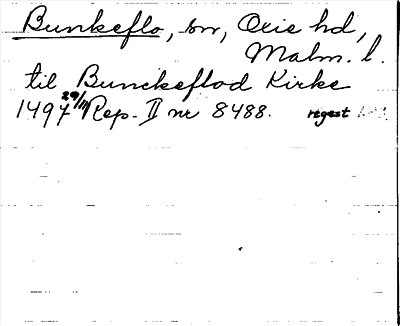 Bunkeflo, sn, Oxie hd,
Malm. l.
til Bunckeflod Kirke
1497 29/11 Rep. II nr 8488. regest